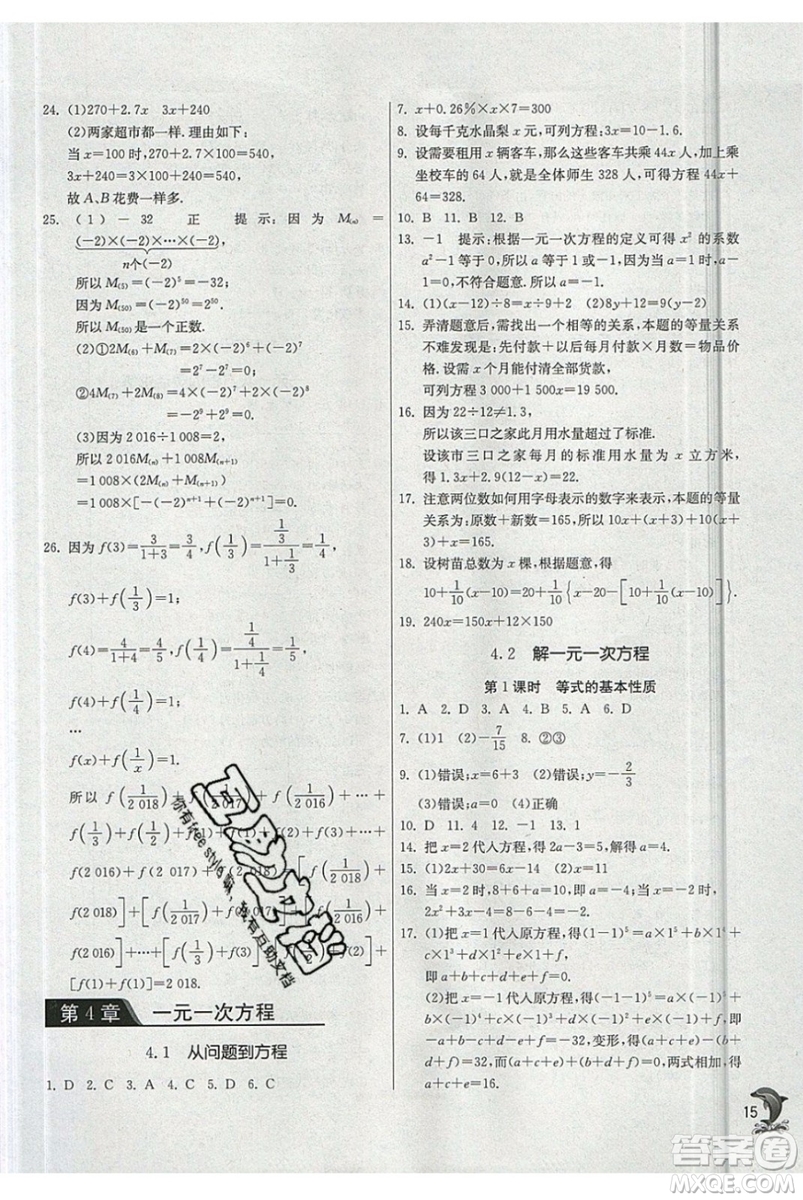 24. (1)270+2.7x 3x+240
(2)两家超市都一样. 理由如下:
当 x=100 时, 270+2.7x=540,
3x+240=3×100+240=540,
故 A、B 花费一样多.
25. (1) -32 正 提示: 因为 M₍ₙ₎ =
(-2)×(-2)×…×(-2),
n个(-2)
所以 M₍₅₎=(-2)⁵=-32;
因为 M₍₅₀₎=(-2)⁵⁰=2⁵⁰.
所以 M₍₅₀₎是一个正数.
(2)①2M₍₆₎+M₍₇₎=2×(-2)⁶+(-2)⁷
=2⁷-2⁷=0;
②4M₍₇₎+2M₍₈₎=4×(-2)⁷+2×(-2)⁸
=-2⁹+2⁹=0.
(3)因为 2 016÷1 008=2,
所以 2 016M₍ₙ₎+1 008M₍ₙ₊₁₎
=1 008×(2M₍ₙ₎+M₍ₙ₊₁₎)
=1 008×[-(-2)ⁿ⁺¹+(-2)ⁿ⁺¹]=0.
26. 因为 f(3)=3/(1+3)=3/4, f(1/3)=(1/3)/(1+1/3)=1/4,
f(3)+f(1/3)=1;
f(4)=4/(1+4)=4/5, f(1/4)=(1/4)/(1+1/4)=1/5,
f(4)+f(1/4)=1;
…
f(x)+f(1/x)=1.
所以 f(1/2 018)+f(1/2 017)+f(1/2 016)+…+
f(1/3)+f(1/2)+f(1)+f(2)+f(3)+…+
f(2 016)+f(2 017)+f(2 018)=[f(1/2 018)+
f(2 018)]+[f(1/2 017)+f(2 017)]+[f(1/2 016)+
f(2 016)]+…+[f(1/3)+f(3)]+[f(1/2)+f(2)]
+[f(1)+f(1)]=2 018.
第4章 一元一次方程
4.1 从问题到方程
1. D 2. C 3. A 4. C 5. D 6. C
7. x+0.26%×x×7=300
8. 设每千克水晶梨 x 元, 可列方程; 3x=10-1.6.
9. 设需要租用 x 辆客车, 那么这些客车共乘 44x 人, 加上乘
坐校车的 64 人, 就是全体师生 328 人, 可列方程为 44x+
64=328.
10. B 11. B 12. B
13. -1 提示: 根据一元一次方程的定义可得 x² 的系数
a²-1 等于 0, 所以 a 等于 1 或 -1, 当 a 等于 1 时, a-
1=0, 不符合题意. 所以 a=-1.
14. (1)(x-9)÷8=x÷9+2 (2)8y+4=9(y-2)
15. 弄清题意后, 需找出一个相等的关系, 本题的等量关系
不难发现是: 先付款+以后每月付款×月数=物品价
格. 设需 x 个月能付清全部货款,
可列方程 3 000+1 500x=19 500.
16. 因为 22÷12≠1.3,
所以该三口之家此月用水量超过了标准.
设该市三口之家每月的标准用水量为 x 立方米,
得 1.3x+2.9(12-x)=22.
17. 注意两位数如何用字母表示的数字来表示, 本题的等量
关系为: 原数+新数=165, 所以 10x+(x+1)+10(x+
1)+x=165.
18. 设树苗总数为 x 棵, 根据题意, 得
10+1/10(x-10)=20+1/10{x-20-[10+1/10(x-10)]}.
19. 240x=150x+12×150
4.2 解一元一次方程
第1课时 等式的基本性质
1. A 2. D 3. A 4. B 5. A 6. D
7. (1)1 (2)-7/15 8. ②③
9. (1)错误; x=6+3 (2)错误; y=-2/3
(3)错误; a=0 (4)正确
10. D 11. 4 12. -1 13. 1
14. 把 x=2 代入方程, 得 2a-3=5, 解得 a=4.
15. (1)2x+30=14 (2)x=11
16. 当 x=2 时, 8+6+a=6-4, 解得 a=-12, 所以
2x²+x²-12=8-6-4x².
17. (1)把 x=1 代入原方程, 得(1-1)⁵=a×1⁵+b×1⁴+c×
1³+d×1²+e×1+f, 所以 a+b+c+d+e+f=0.
(2)把 x=-1 代入原方程, 得(-1-1)⁵=a×(-1)⁵+b
×(-1)⁴+c×(-1)³+d×(-1)²+e×(-1)+f, 所以
-a+b-c+d-e+f=-32, 变形, 得(b+d+f)-
(a+c+e)=-32, 因为 a+b+c+d+e+f=0, 两式相加,
得 a+c+e=16.
15
你有free style嘛, 我有互助文档
答案圈
MXQE.COM